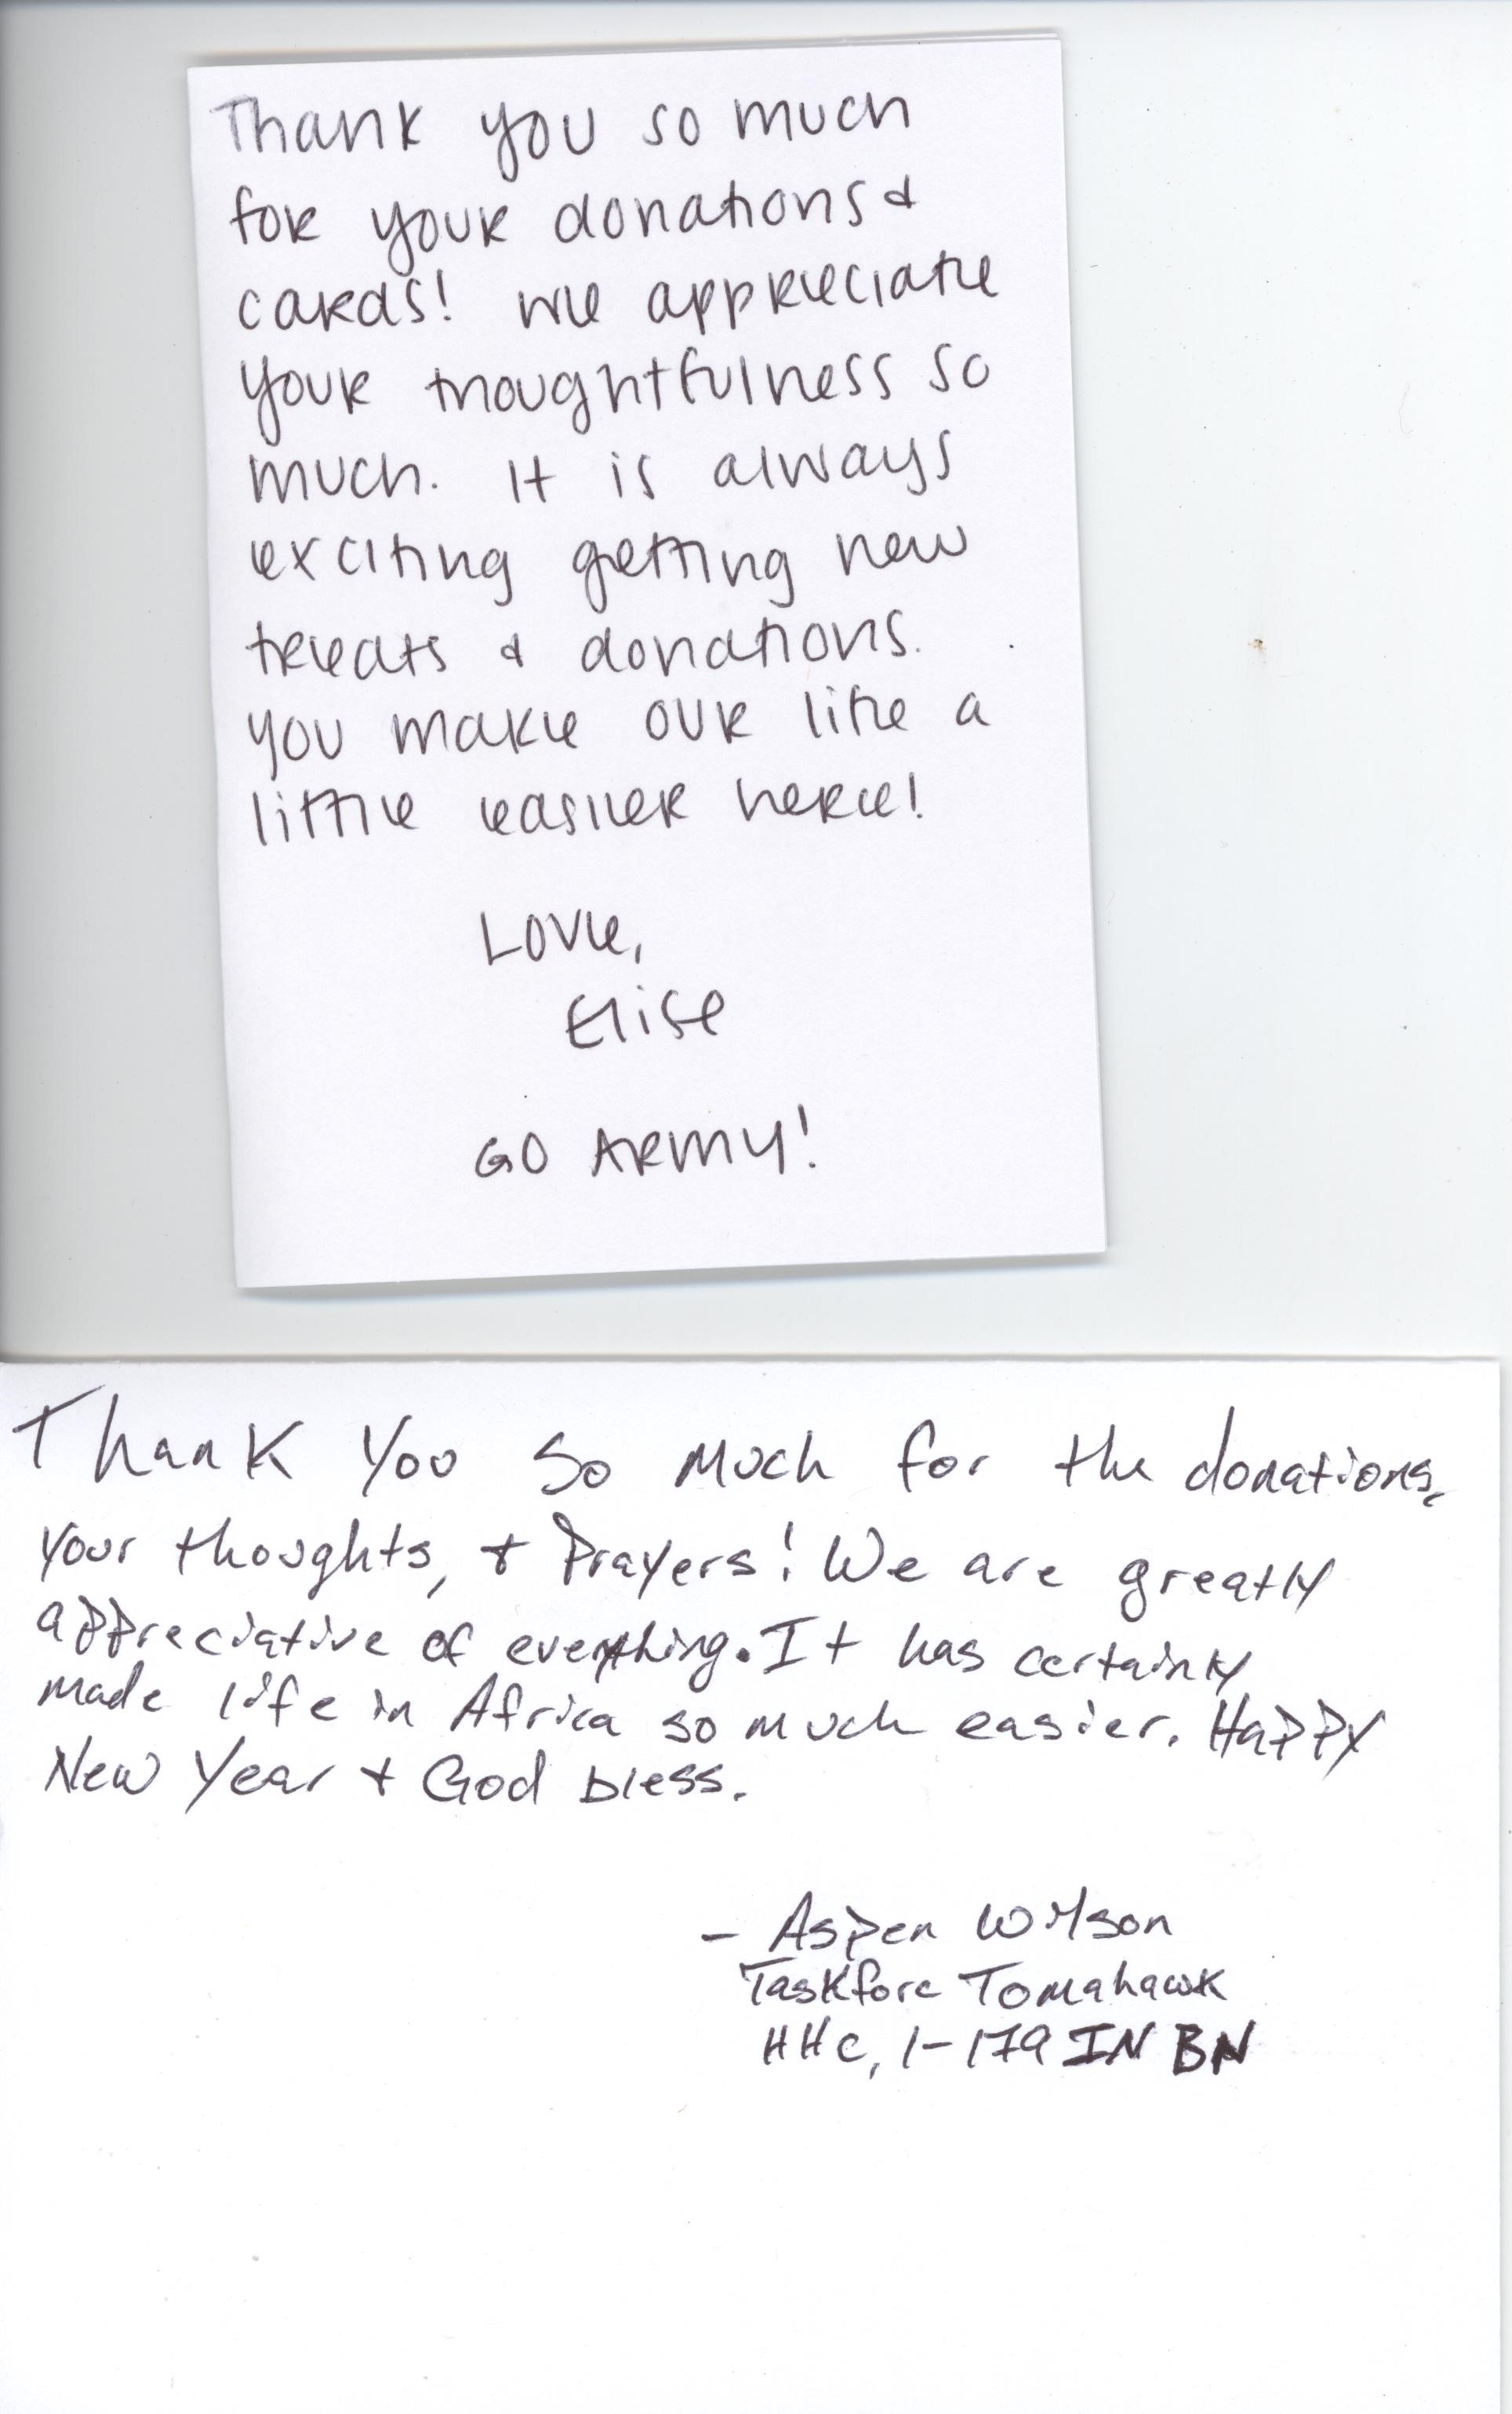 Thank you so much
for your donations &
cards! We appreciate
your thoughtfulness so
much. It is always
exciting getting new
treats & donations.
You make our life a
little easier here!
Love,
Elise
GO ARMY!
Thank You So Much for the donations,
your thoughts, & Prayers! We are greatly
appreciative of everything. It has certainly
made life in Africa so much easier. Happy
New Year & God bless.
- Aspen Wilson
Taskforc Tomahawk
HHC, 1-179 IN BN